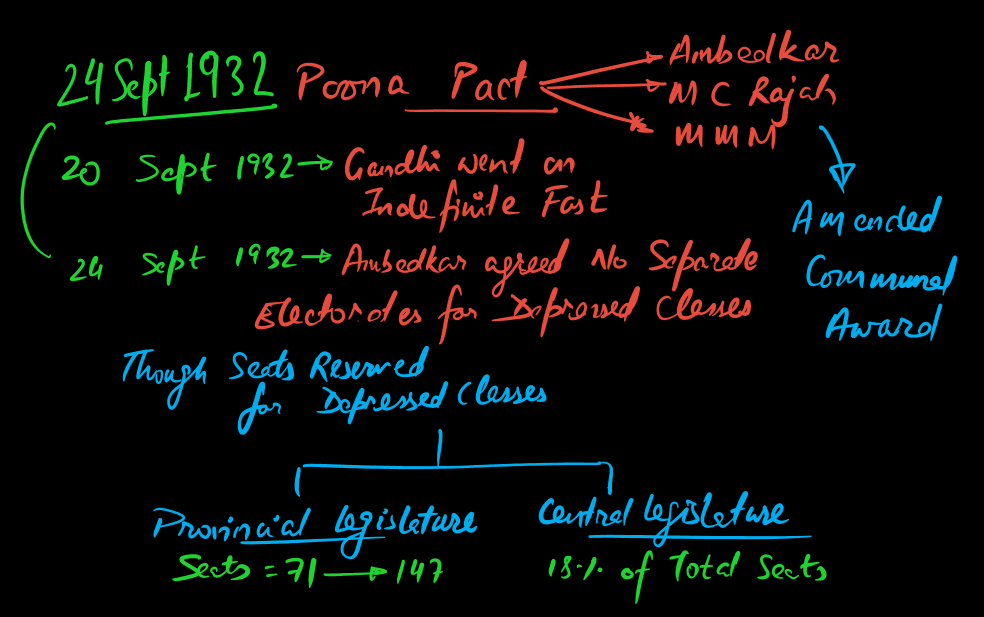 24 Sept 1932 Poona Pact
Ambedkar
M C Rajah
M M M
20 Sept 1932 → Gandhi went on
Indefinite Fast
24 Sept 1932 → Ambedkar agreed No Separate
Electorates for Depressed Classes
Amended
Communal
Award
Though Seats Reserved
for Depressed Classes
Provincial Legislature
Seats = 71 → 147
Central Legislature
18% of Total Seats